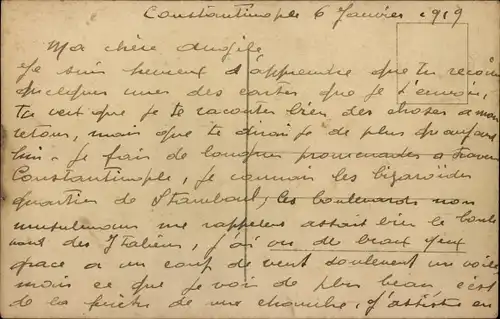 Constantinople 6 Janvier 1919
Ma chère Angèle
Je suis heureux d'apprendre que tu reçois
quelques unes des cartes que je t'envoie,
tu veut que je te raconte bien des choses a mon
retour, mais que te dirai je de plus qu'aujourd
hui. Je fais de longues promenades a travers
Constantinople, je connais les bizaroïdes
quartier de Stamboul, les boulevards non
musulmans me rappelent assait bien le boule
vard des Italiens, j'ai vu de beaux yeux
grace a un coup de vent soulevant un voile
mais ce que je vois de plus beau c'est
de la fenêtre de ma chambre, j'assiste en